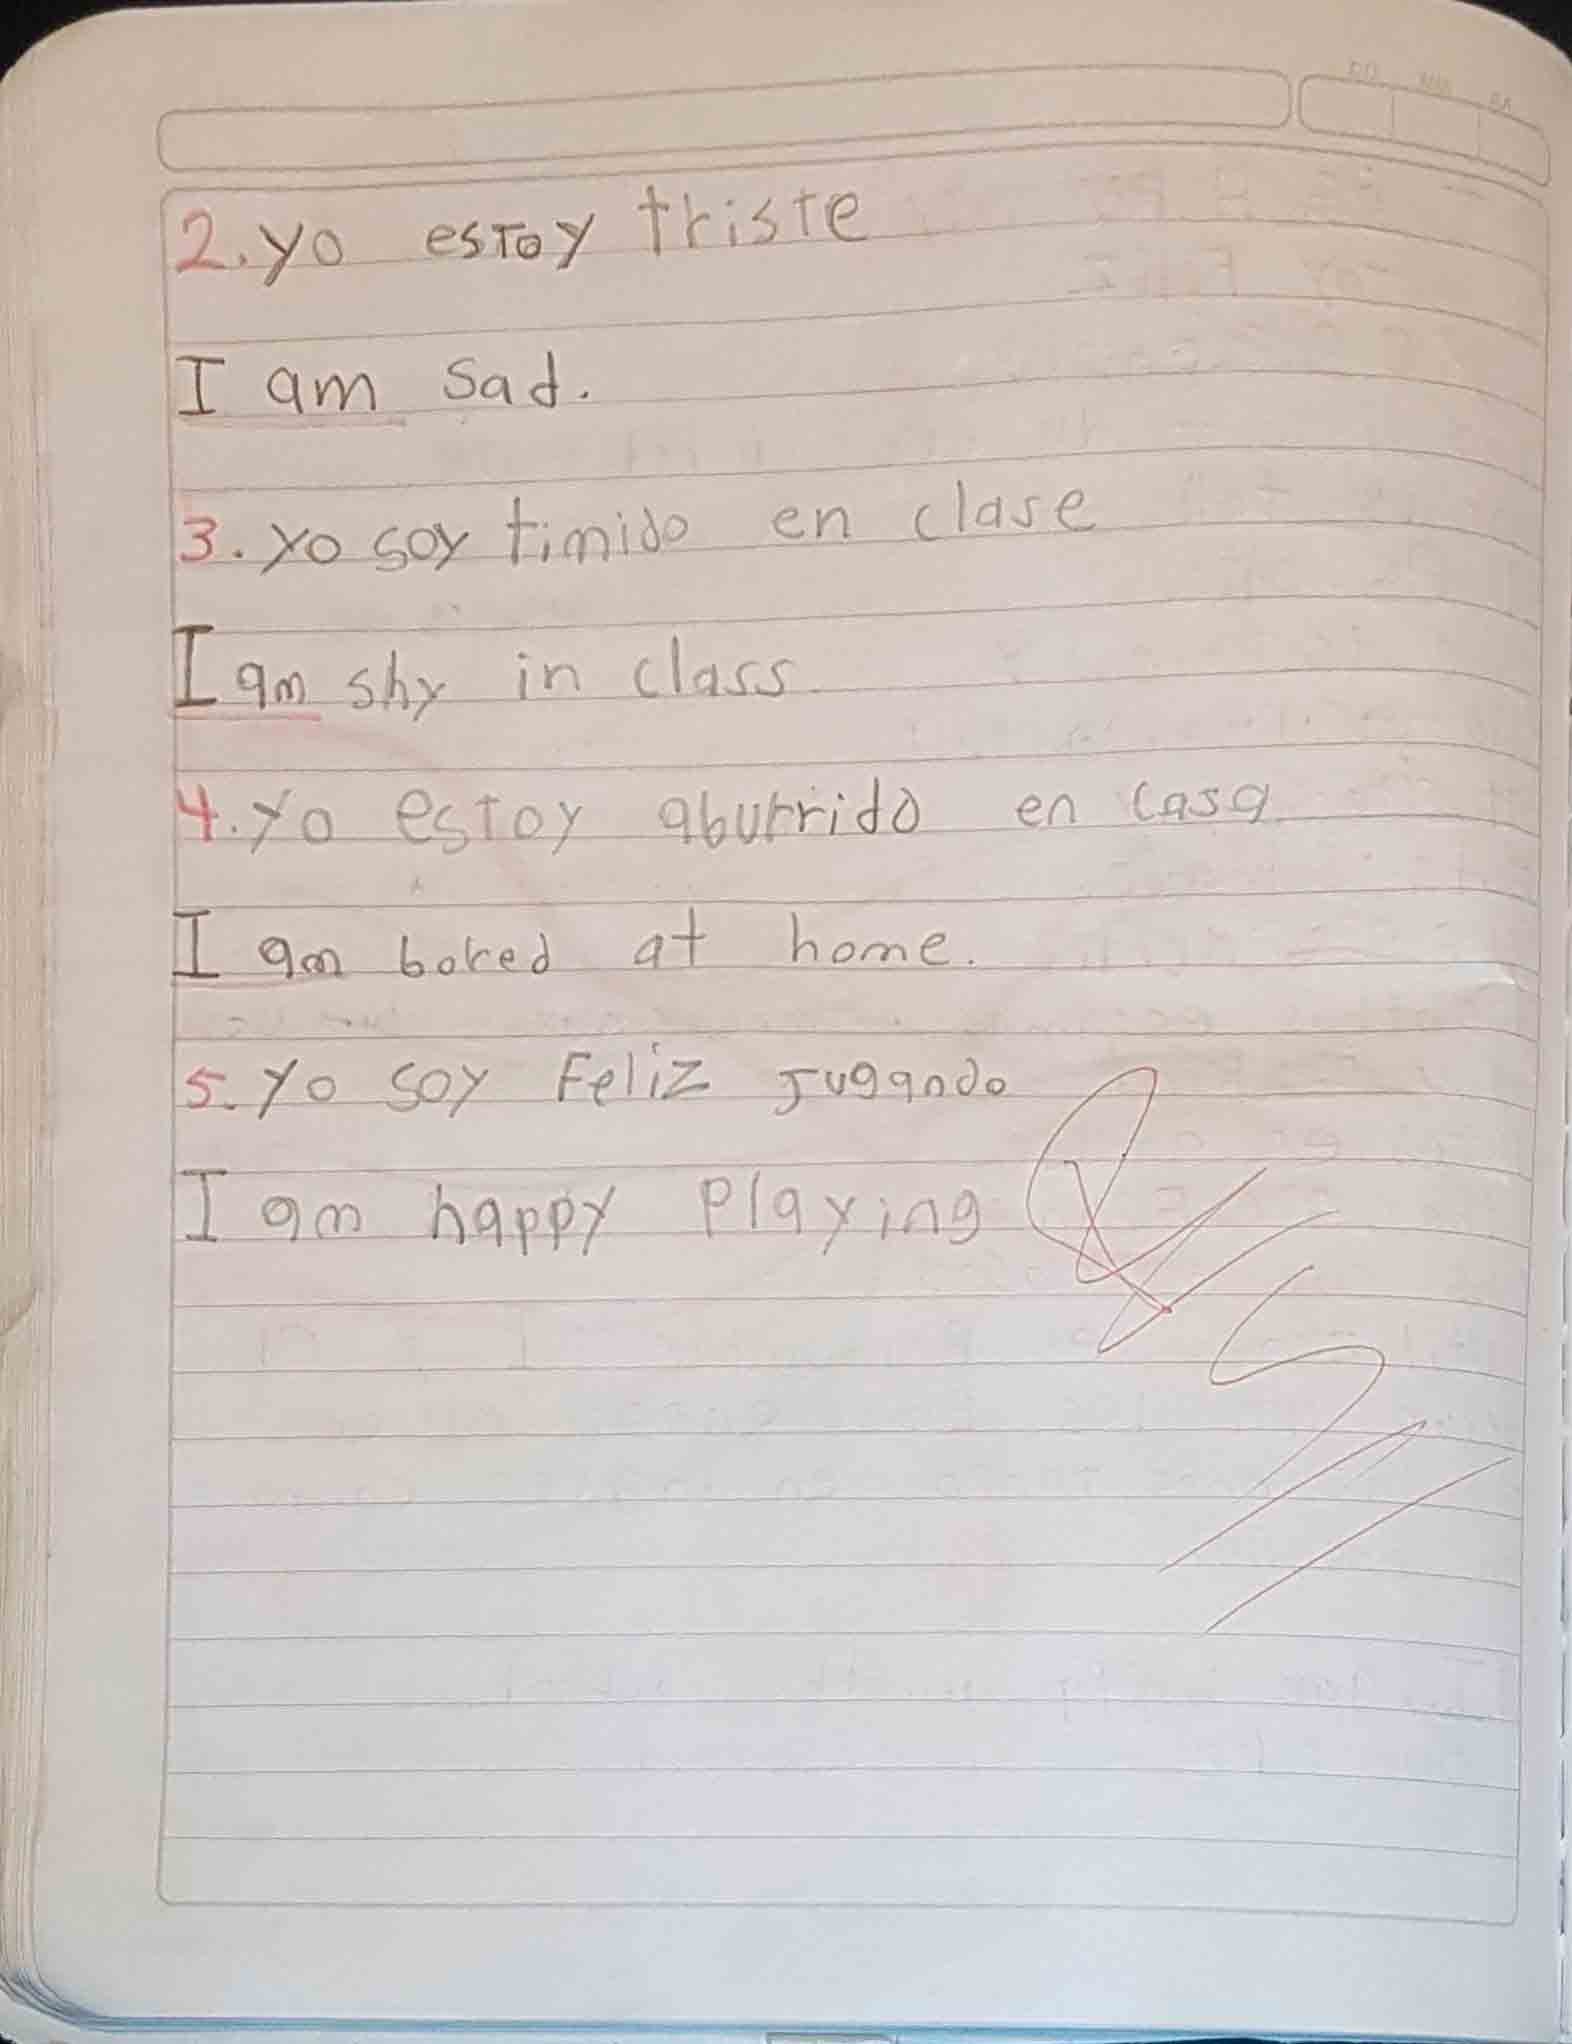 2. yo estoy triste
I am sad.
3. yo soy timido en clase
I am shy in class
4. yo estoy aburrido en casa
I am bored at home.
5. yo soy Feliz Jugando
I am happy Playing